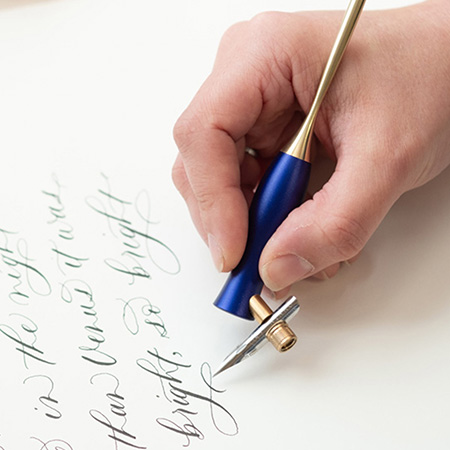 in the night
than Venus it was
bright, so bright